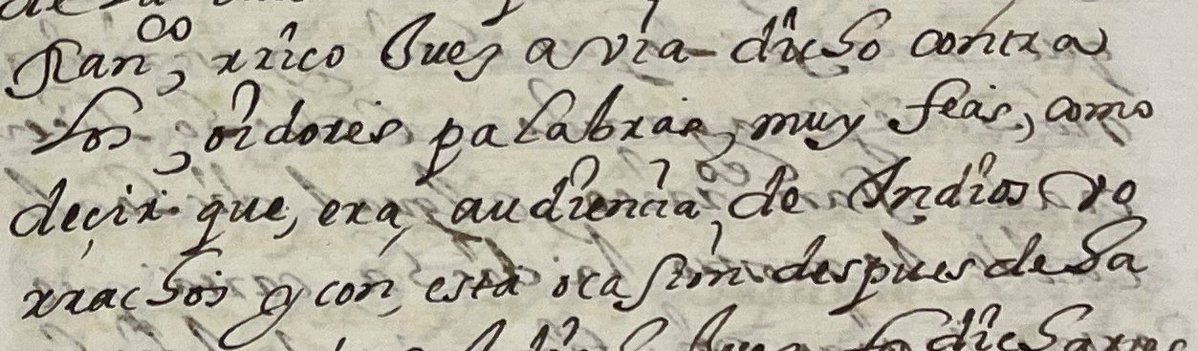 fran^co, rrico avia dicho contra
los, oidores palabras, muy feas, como
deçir que, era, audiencia, de Indios vo
rrachos y con, esta ocasion despues de ha